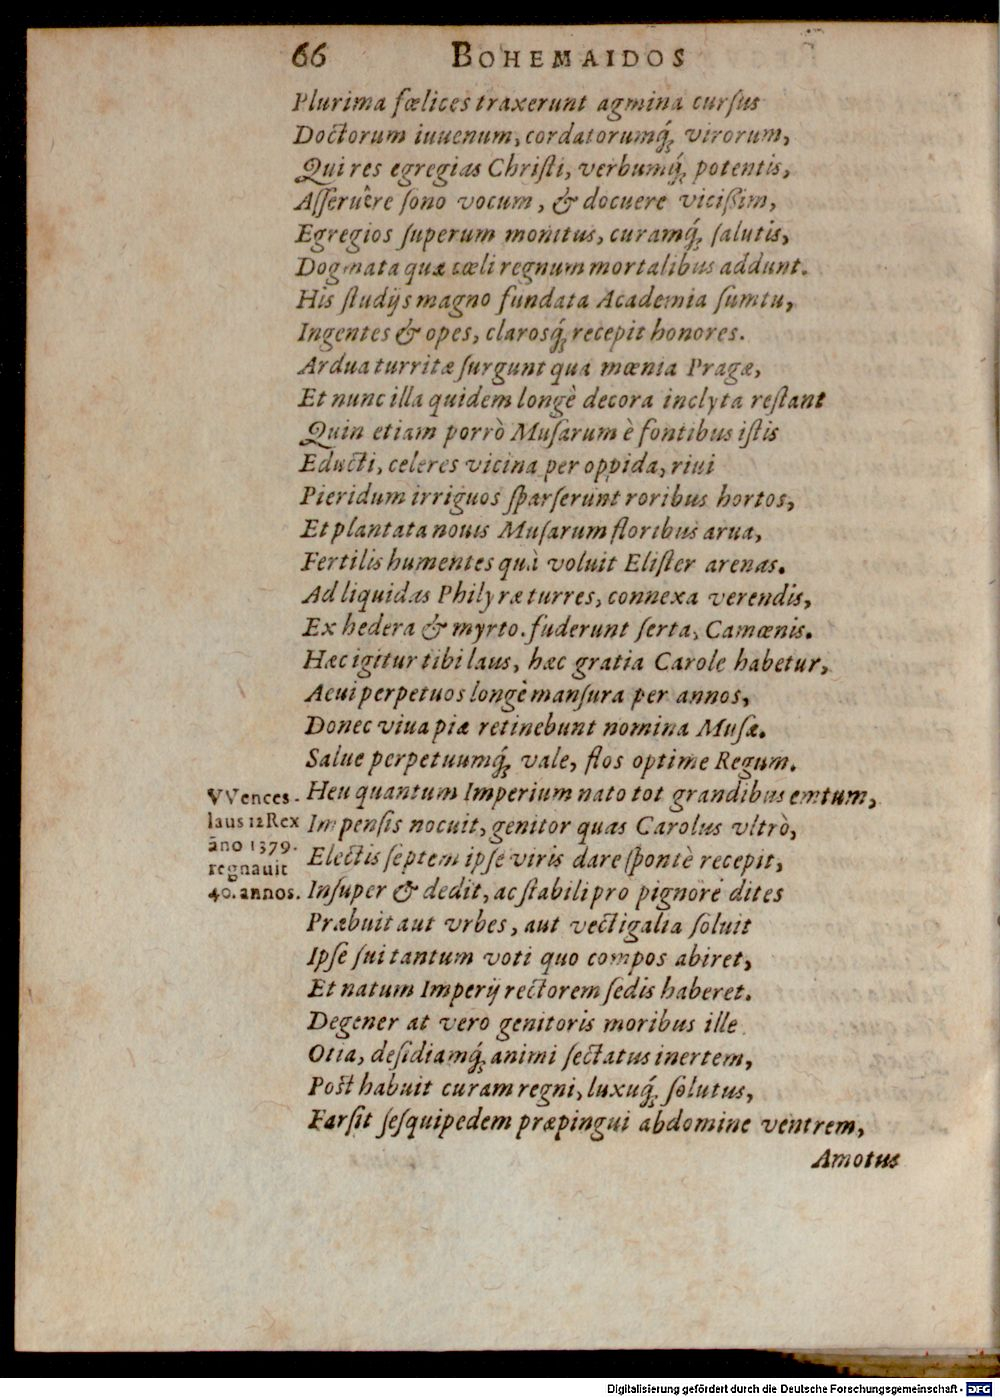 66 BOHEMAIDOS
Plurima fœlices traxerunt agmina curſus
Doctorum iuuenum, cordatorumq́ꝫ virorum,
Qui res egregias Chriſti, verbumq́ꝫ potentis,
Aſſeruêre ſono vocum, & docuere viciſsim,
Egregios ſuperum monitus, curamq́ꝫ ſalutis,
Dogmata quæ cœli regnum mortalibus addunt.
His ſtudijs magno fundata Academia ſumtu,
Ingentes & opes, claroſq́ꝫ recepit honores.
Ardua turritæ ſurgunt qua mœnia Pragæ,
Et nunc illa quidem longè decora inclyta reſtant
Quin etiam porrò Muſarum è fontibus iſtis
Educti, celeres vicina per oppida, riui
Pieridum irriguos ſparſerunt roribus hortos,
Et plantata nouis Muſarum floribus arua,
Fertilis humentes quà voluit Eliſter arenas.
Ad liquidas Philyræ turres, connexa verendis,
Ex hedera & myrto. fuderunt ſerta, Camœnis.
Hæc igitur tibi laus, hæc gratia Carole habetur,
Aeui perpetuos longè manſura per annos,
Donec viua piæ retinebunt nomina Muſæ.
Salue perpetuumq́ꝫ vale, flos optime Regum.
VVences-
laus 12 Rex
āno 1379.
regnauit
40. annos.
Heu quantum Imperium nato tot grandibus emtum,
Impenſis nocuit, genitor quas Carolus vltrò,
Electis ſeptem ipſe viris dare ſpontè recepit,
Inſuper & dedit, ac ſtabili pro pignore dites
Præbuit aut vrbes, aut vectigalia ſoluit
Ipſe ſui tantum voti quo compos abiret,
Et natum Imperij rectorem ſedis haberet.
Degener at vero genitoris moribus ille
Otia, deſidiamq́ꝫ animi ſectatus inertem,
Poſt habuit curam regni, luxuq́ꝫ ſolutus,
Farſit ſeſquipedem præpingui abdomine ventrem,
Amotus
Digitalisierung gefördert durch die Deutsche Forschungsgemeinschaft - DFG